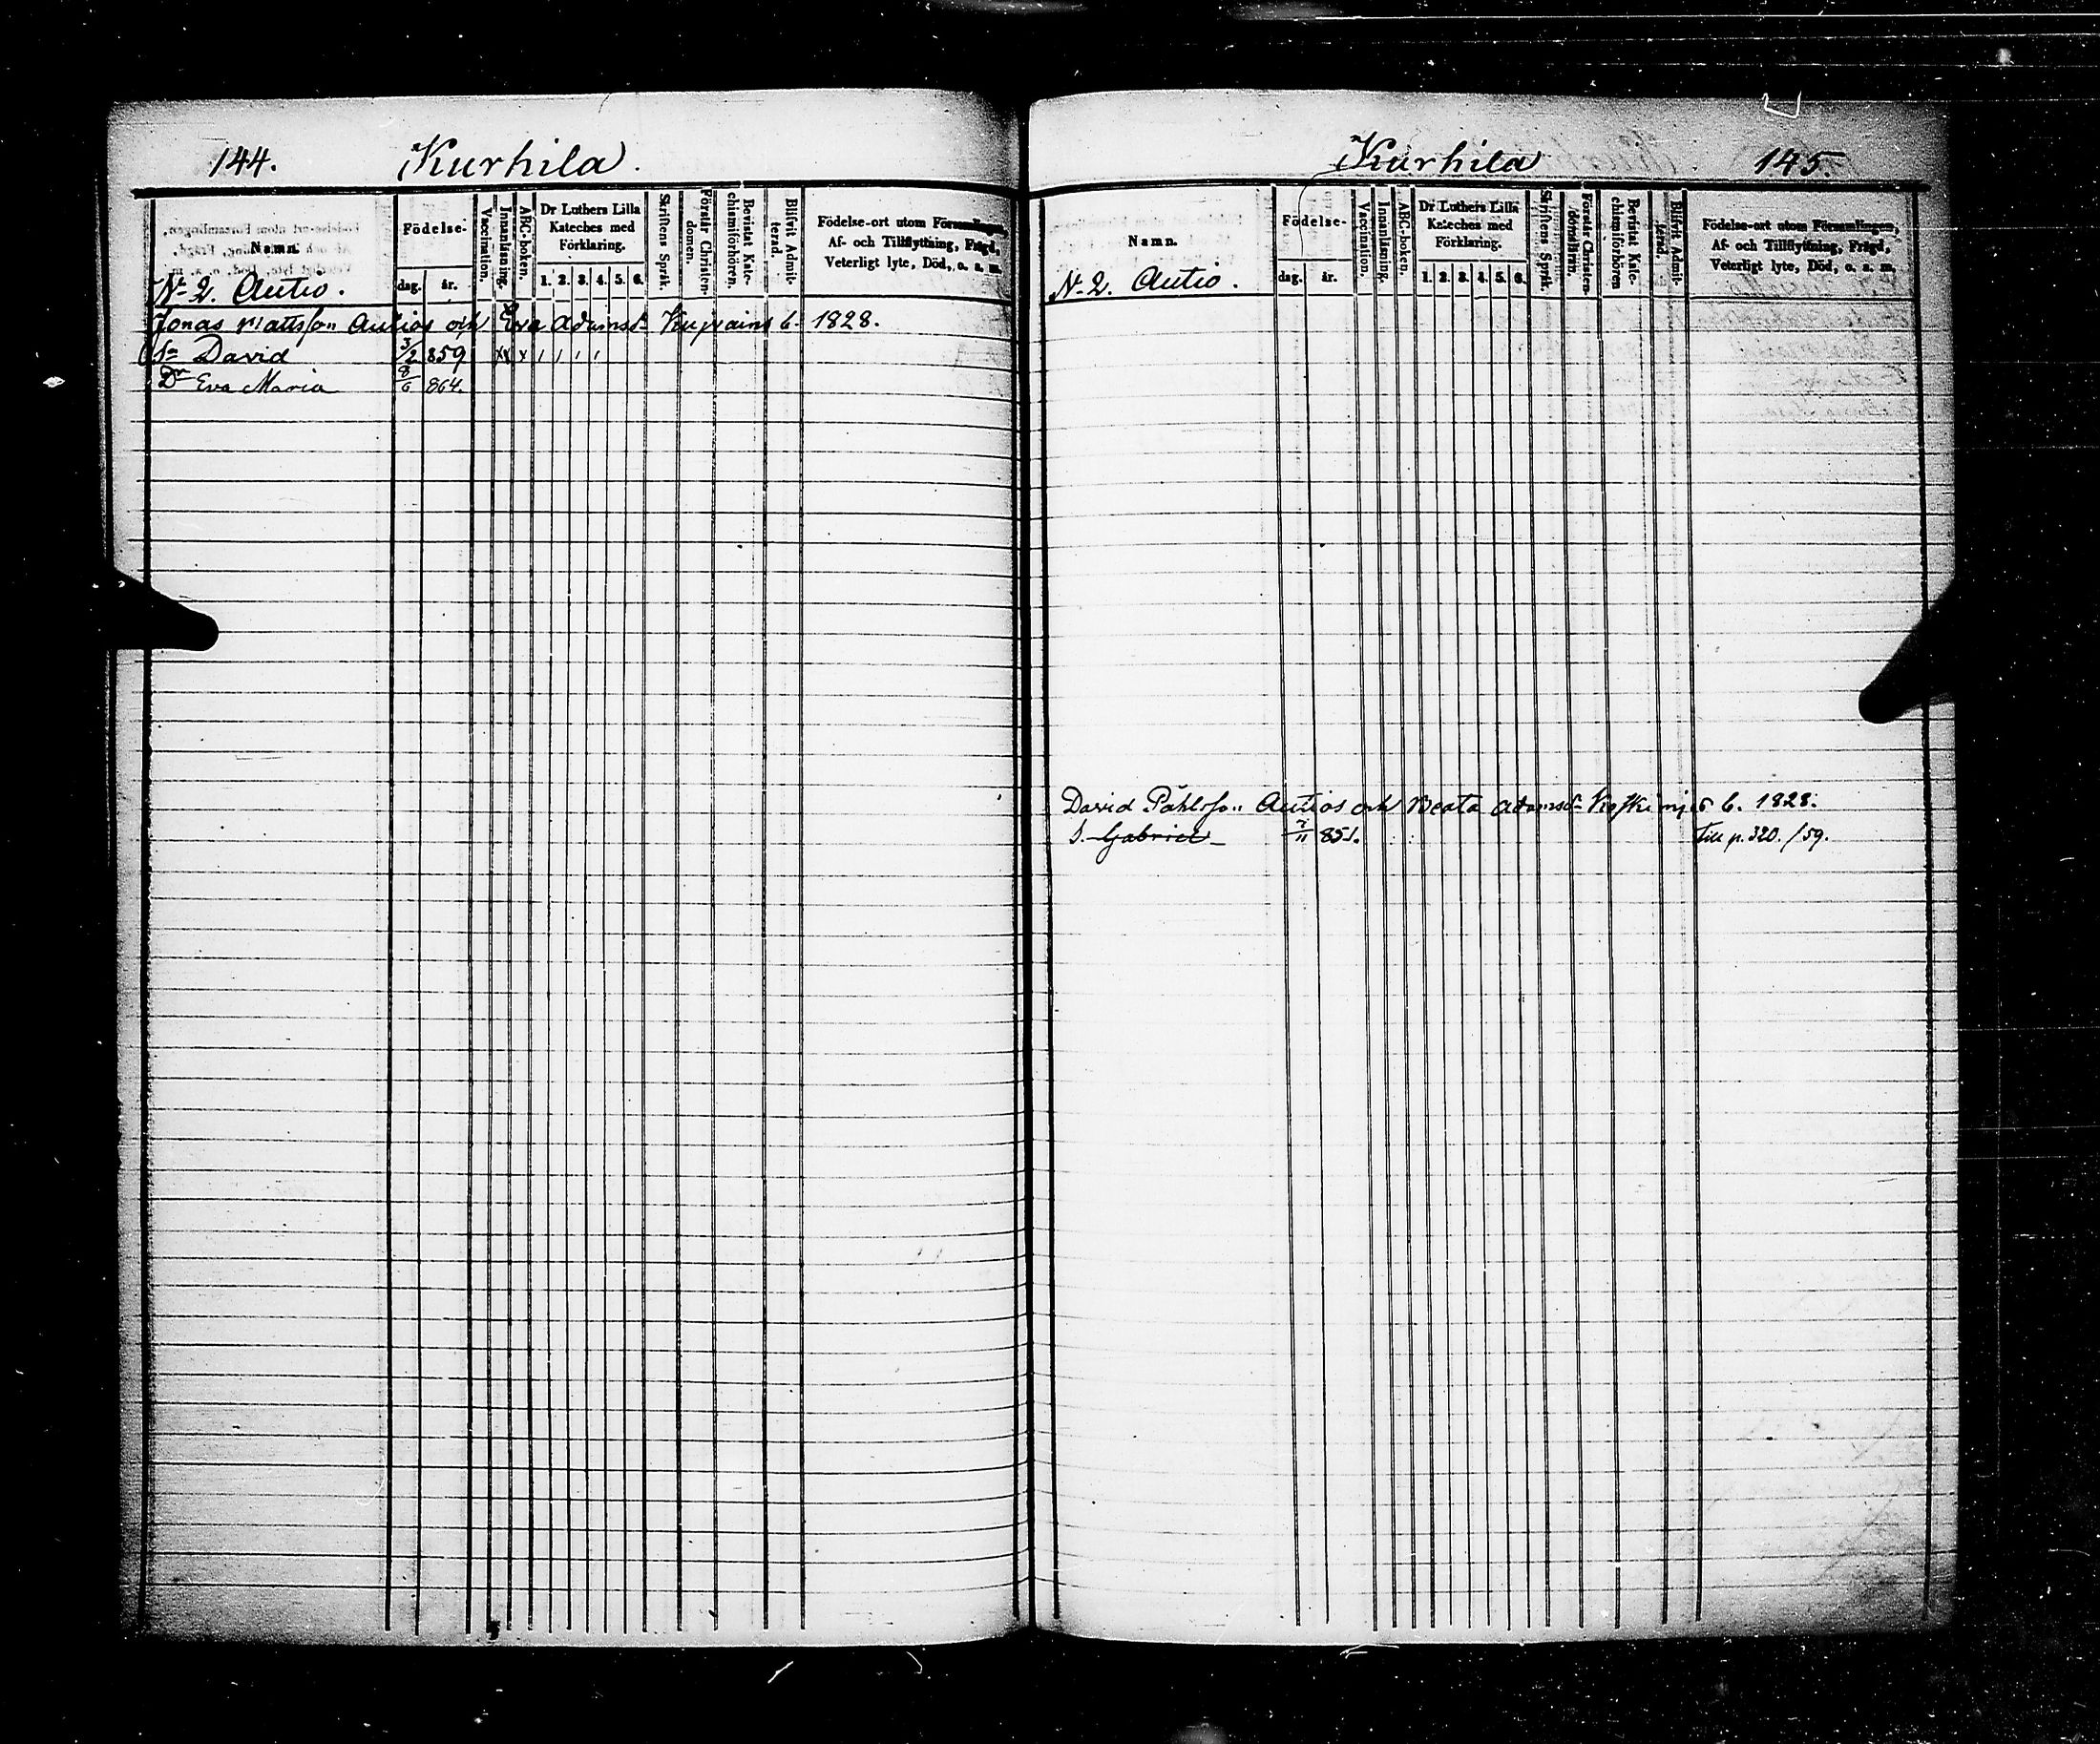 144. Kurhila.
Namn. Födelse- Vaccination. Innanläsning. ABC-boken. Dr Luthers Lilla Kateches med Förklaring. Skriftens Språk. Förstår Christen-domen. Bevistat Kate-chismiförhören. Blifvit Admit-terad. Födelse-ort utom Församlingen, Af- och Tillflyttning, Frägd, Veterligt lyte, Död, o. s. m.
dag. år. 1. 2. 3. 4. 5. 6.
N. 2. Autio.
Jonas Mattsson Autios och Eva Adamsd. 6. 1828.
Sn David 3/2 859 xx x / / / /
Dr Eva Maria 8/6 864.
Kurhila 145.
Namn. Födelse- Vaccination. Innanläsning. ABC-boken. Dr Luthers Lilla Kateches med Förklaring. Skriftens Språk. Bevistat Kate-chismiförhören Blifvit Admit-terad. Födelse-ort utom Församlingen, Af- och Tillflyttning, Frägd, Veterligt lyte, Död, o. s. m.
dag. år. 1. 2. 3. 4. 5. 6.
N. 2. Autio.
David Påhlsson Autios och Beata Adamsd. 6. 1828.
S. Gabriel 7/11 851. Till p. 320. /59.